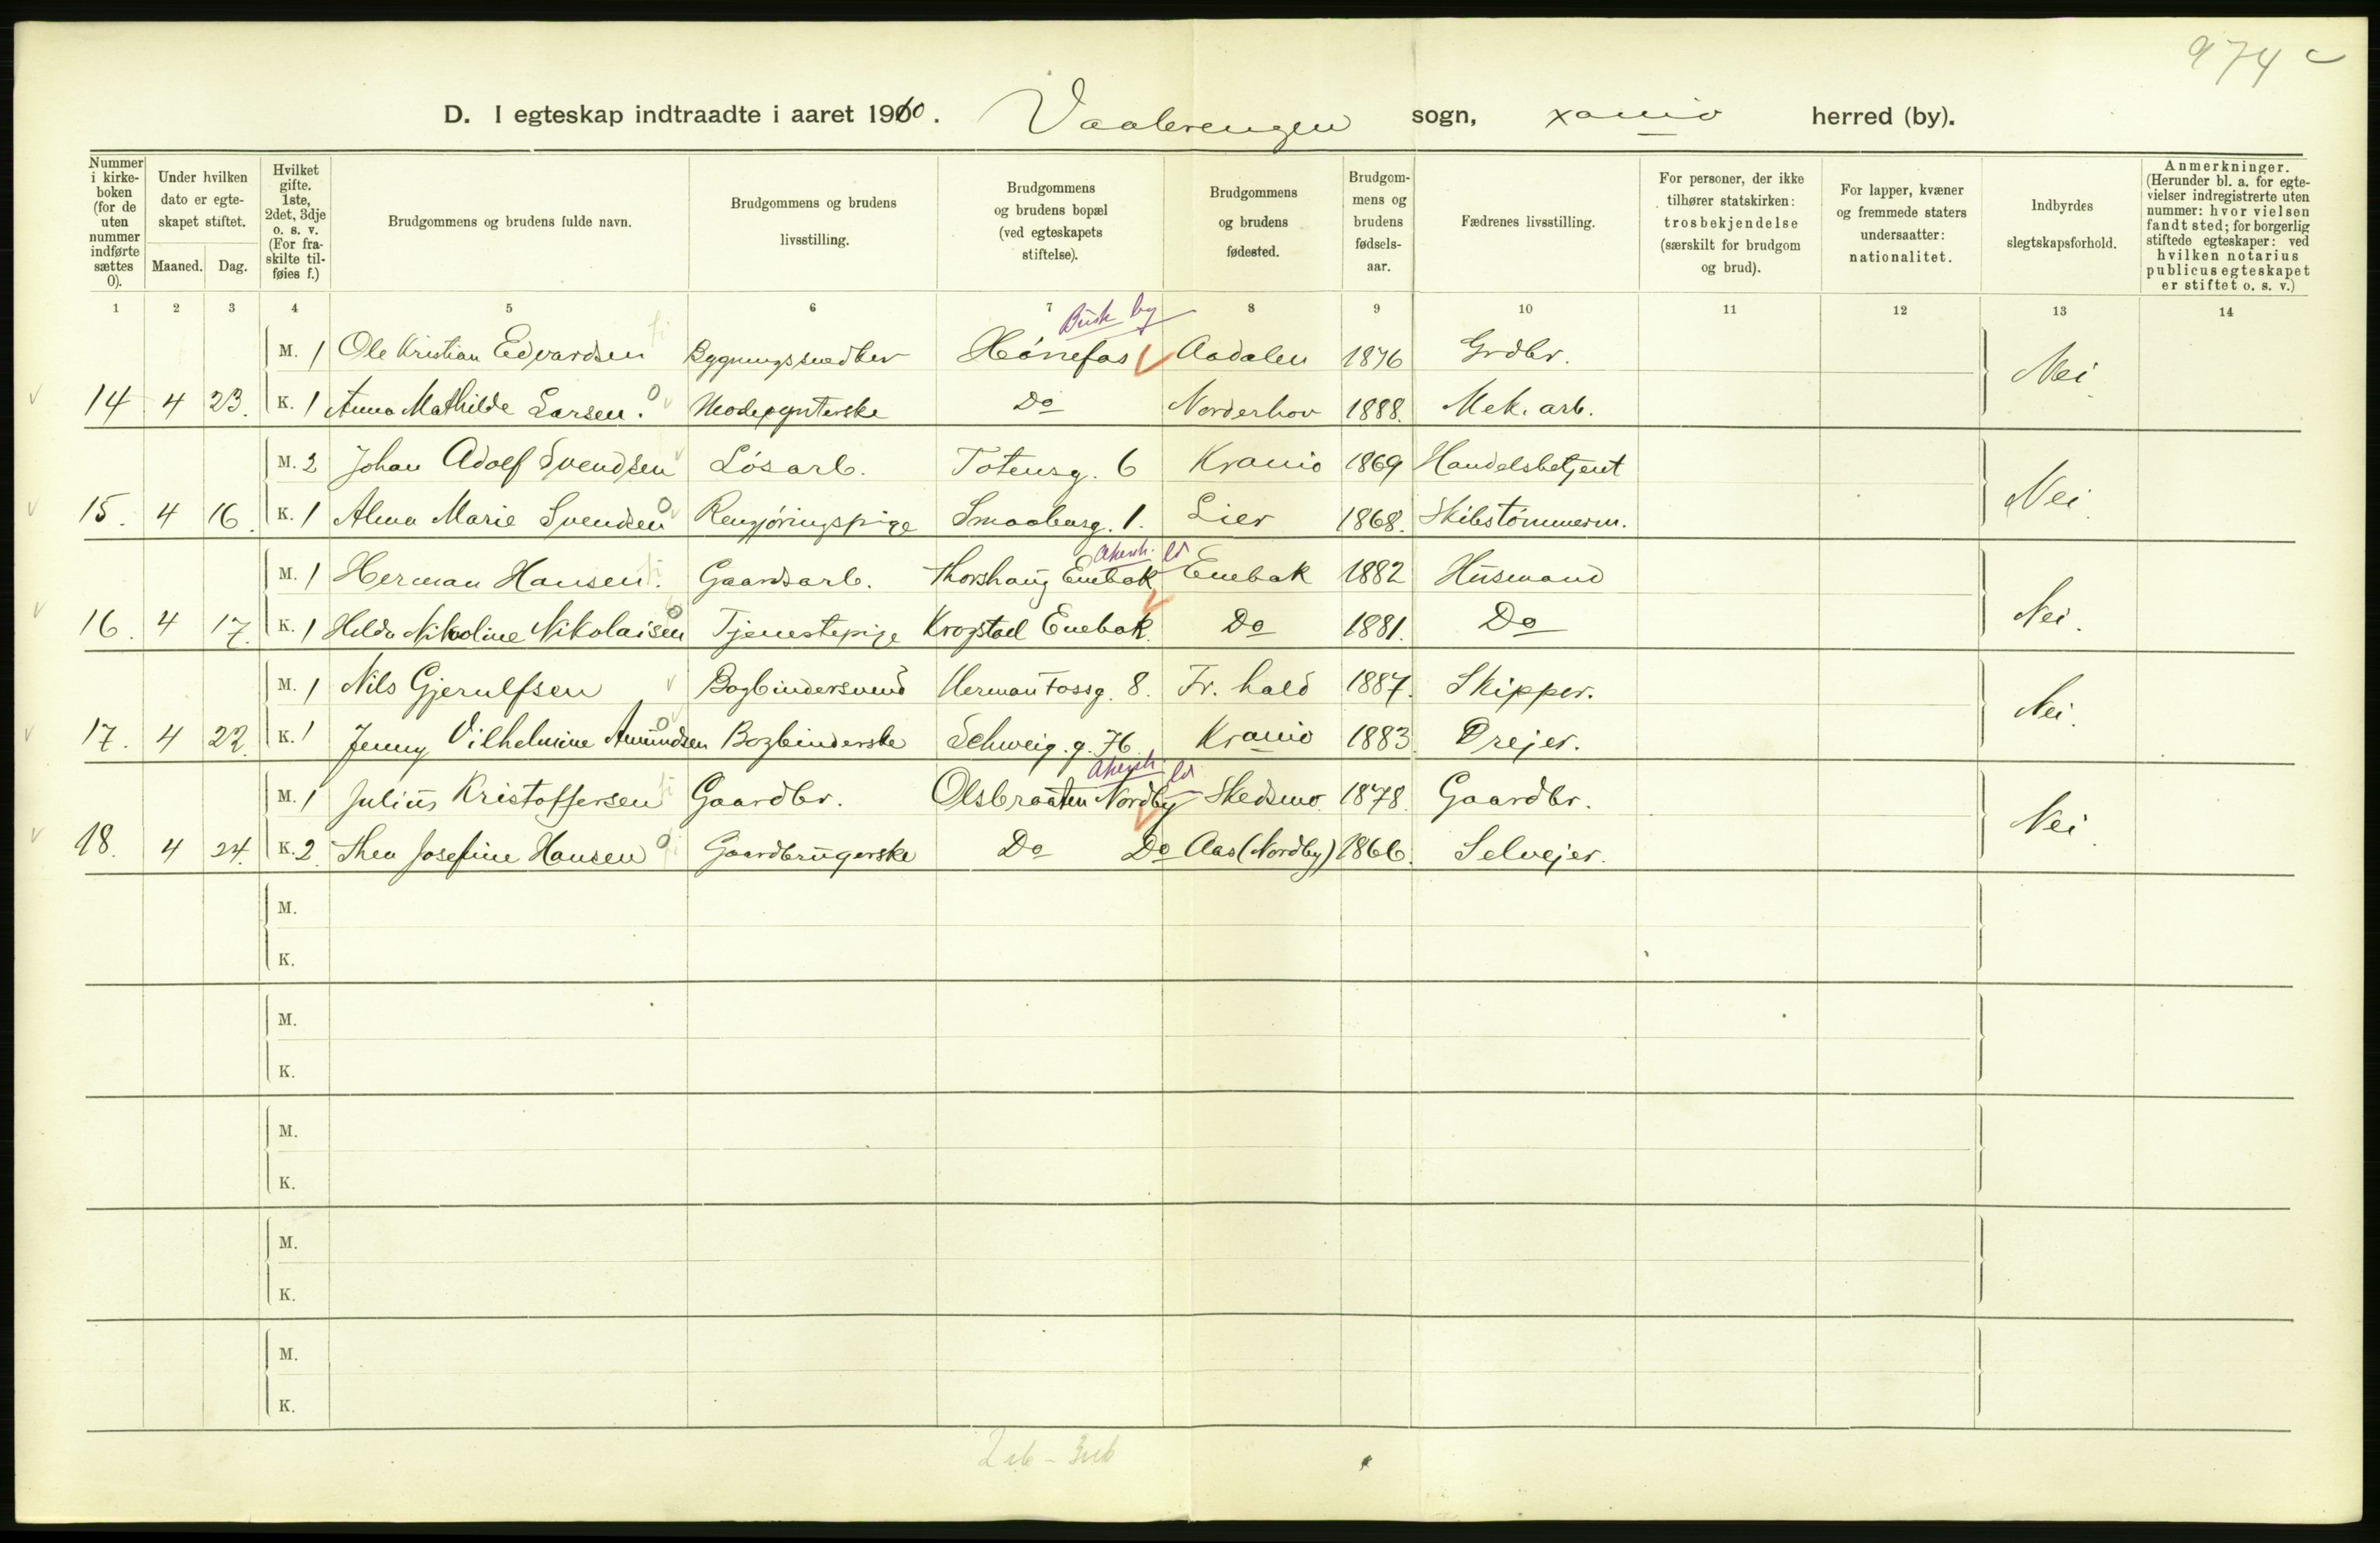 974 c
D. I egteskap indtraadte i aaret 1910. Vaalerengen sogn, Xania herred (by).
Nummer i kirkeboken (for de uten nummer indførte sættes 0).
Under hvilken dato er egteskapet stiftet.
Maaned. Dag.
Hvilket gifte. 1ste, 2det, 3dje o. s. v. (For fraskilte tilføies f.)
Brudgommens og brudens fulde navn.
Brudgommens og brudens livsstilling.
Brudgommens og brudens bopæl (ved egteskapets stiftelse).
Brudgommens og brudens fødested.
Brudgommens og brudens fødselsaar.
Fædrenes livsstilling.
For personer, der ikke tilhører statskirken: trosbekjendelse (særskilt for brudgom og brud).
For lapper, kvæner og fremmede staters undersaatter: nationalitet.
Indbyrdes slegtskapsforhold.
Anmerkninger. (Herunder bl. a. for egtevielser indregistrerte uten nummer: hvor vielsen fandt sted; for borgerlig stiftede egteskaper: ved hvilken notarius publicus egteskapet er stiftet o. s. v.)
1 2 3 4 5 6 7 8 9 10 11 12 13 14
Busk by
M. 1 Ole Kristian Edvardsen Bygningssnedker Hønefos Aadalen 1876 Grdbr.
14 4 23. K. 1 Anna Mathilde Larsen. Modepynterske Do Norderhov 1888. Mek. arb. Nei
M. 2 Johan Adolf Svendsen Løsarb. Totensg. 6 Krania 1869 Handelsbetjent
15. 4 16. K. 1 Alma Marie Svendsen Rengjøringspige Smaalensg. 1. Lier 1868. Skibstømmerm. Nei
Akersh. ld
M. 1 Herman Hansen. Gaardsarb. Thorshaug Enebak Enebak 1882 Husmand
16. 4 17. K. 1 Hilda Nikoline Nikolaisen Tjenestepige Krogstad Enebak. Do 1881. Do Nei.
M. 1 Nils Gjerulfsen Bogbindersvend Herman Fossg. 8. Fr. hald 1887. Skipper.
17. 4 22. K. 1 Jenny Vilhelmine Amundsen Bogbinderske Schweig. g. 76 Krania 1883. Drejer. Nei.
Akersh. ld
M. 1 Julius Kristoffersen Gaardbr. Olsbraaten Nordby Skedsmo. 1878. Gaardbr.
18. 4 24. K. 2. Thea Josefine Hansen Gaardbrugerske Do Do Aas (Nordby) 1866. Selvejer. Nei
M.
K.
M.
K.
M.
K.
M.
K.
M.
K.